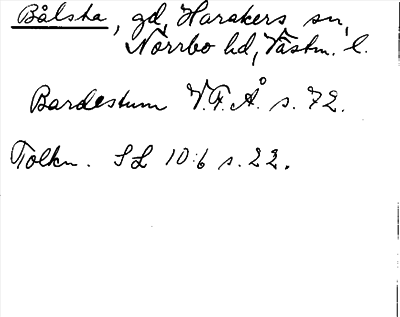 Bålsta, gd, Harakers sn,
Norrbo hd, Västm. l.
Bardestum V.F.Å. s. 72.
Tolkn. SL 10:6 s. 22.